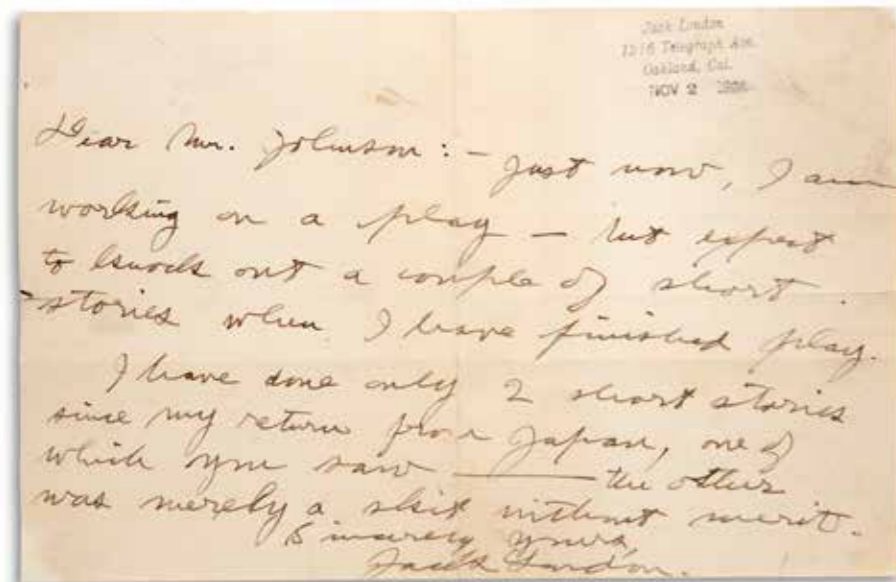 Jack London
1216 Telegraph Ave.
Oakland, Cal.
NOV 2
Dear Mr. Johnson:— Just now, I am
working on a play — but expect
to knock out a couple of short
stories when I have finished play.
I have done only 2 short stories
since my return from Japan, one of
which you saw — the other
was merely a skit without merit.
Sincerely yours,
Jack London.